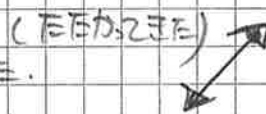 (たたかってきた)
た.